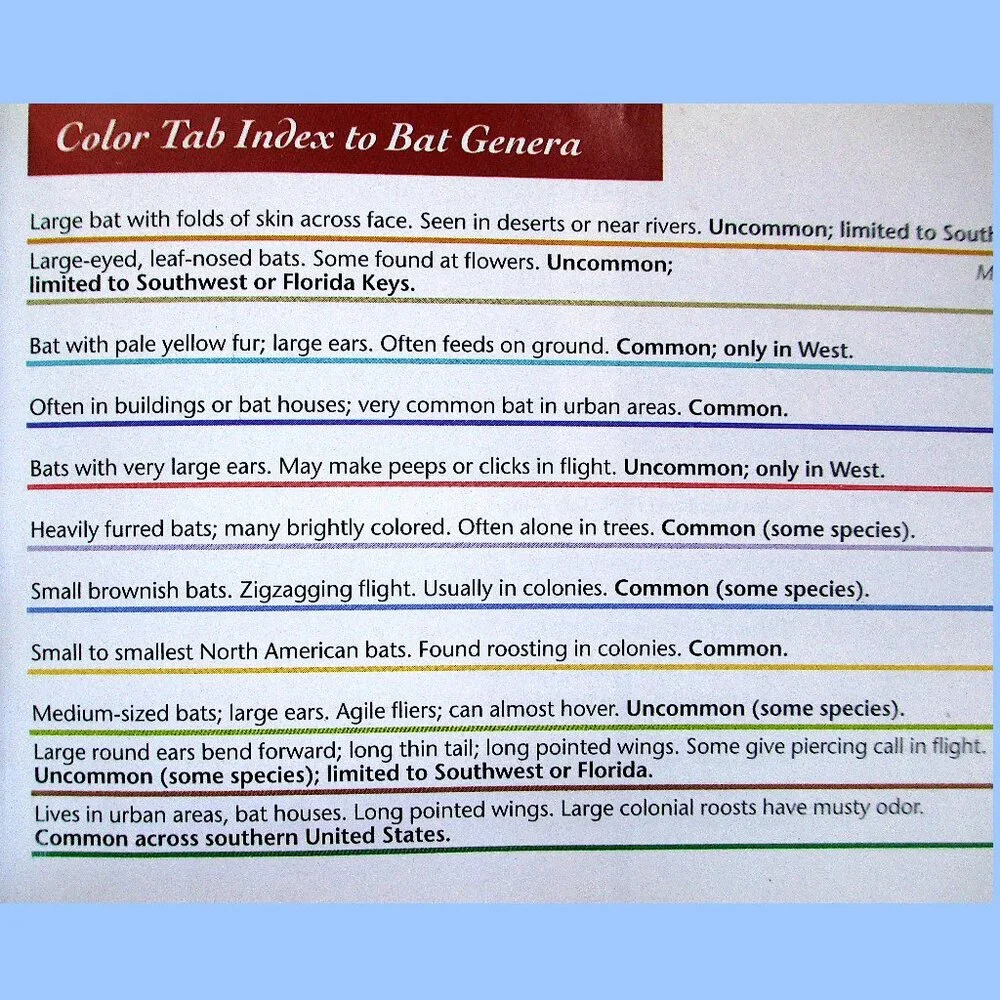 Color Tab Index to Bat Genera
Large bat with folds of skin across face. Seen in deserts or near rivers. Uncommon; limited to
Large-eyed, leaf-nosed bats. Some found at flowers. Uncommon;
limited to Southwest or Florida Keys.
Bat with pale yellow fur; large ears. Often feeds on ground. Common; only in West.
Often in buildings or bat houses; very common bat in urban areas. Common.
Bats with very large ears. May make peeps or clicks in flight. Uncommon; only in West.
Heavily furred bats; many brightly colored. Often alone in trees. Common (some species).
Small brownish bats. Zigzagging flight. Usually in colonies. Common (some species).
Small to smallest North American bats. Found roosting in colonies. Common.
Medium-sized bats; large ears. Agile fliers; can almost hover. Uncommon (some species).
Large round ears bend forward; long thin tail; long pointed wings. Some give piercing call in flight.
Uncommon (some species); limited to Southwest or Florida.
Lives in urban areas, bat houses. Long pointed wings. Large colonial roosts have musty odor.
Common across southern United States.